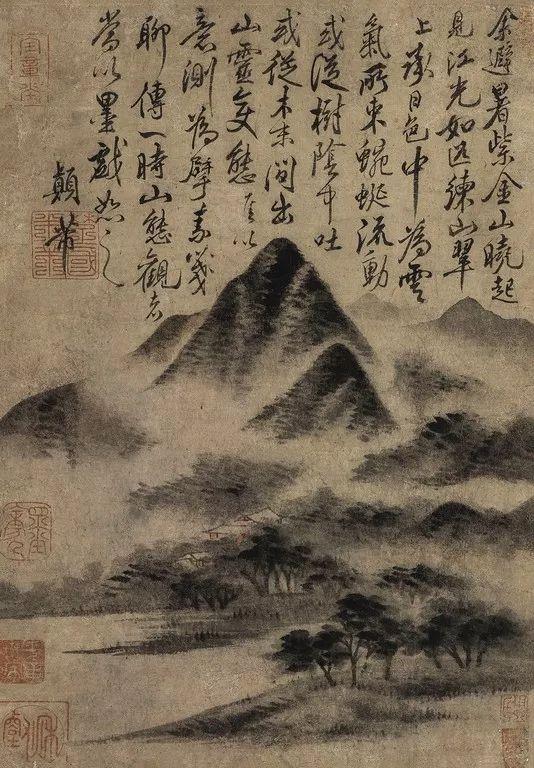 余避暑紫金山曉起
見江光如匹練山翠
上日色中為雲
氣所束蜿蜒流動
或從樹陰中吐
或從木末間出
山靈變態以
意測為擘素箋
聊傳一時山態觀者
當以墨戲恕之
顛芾